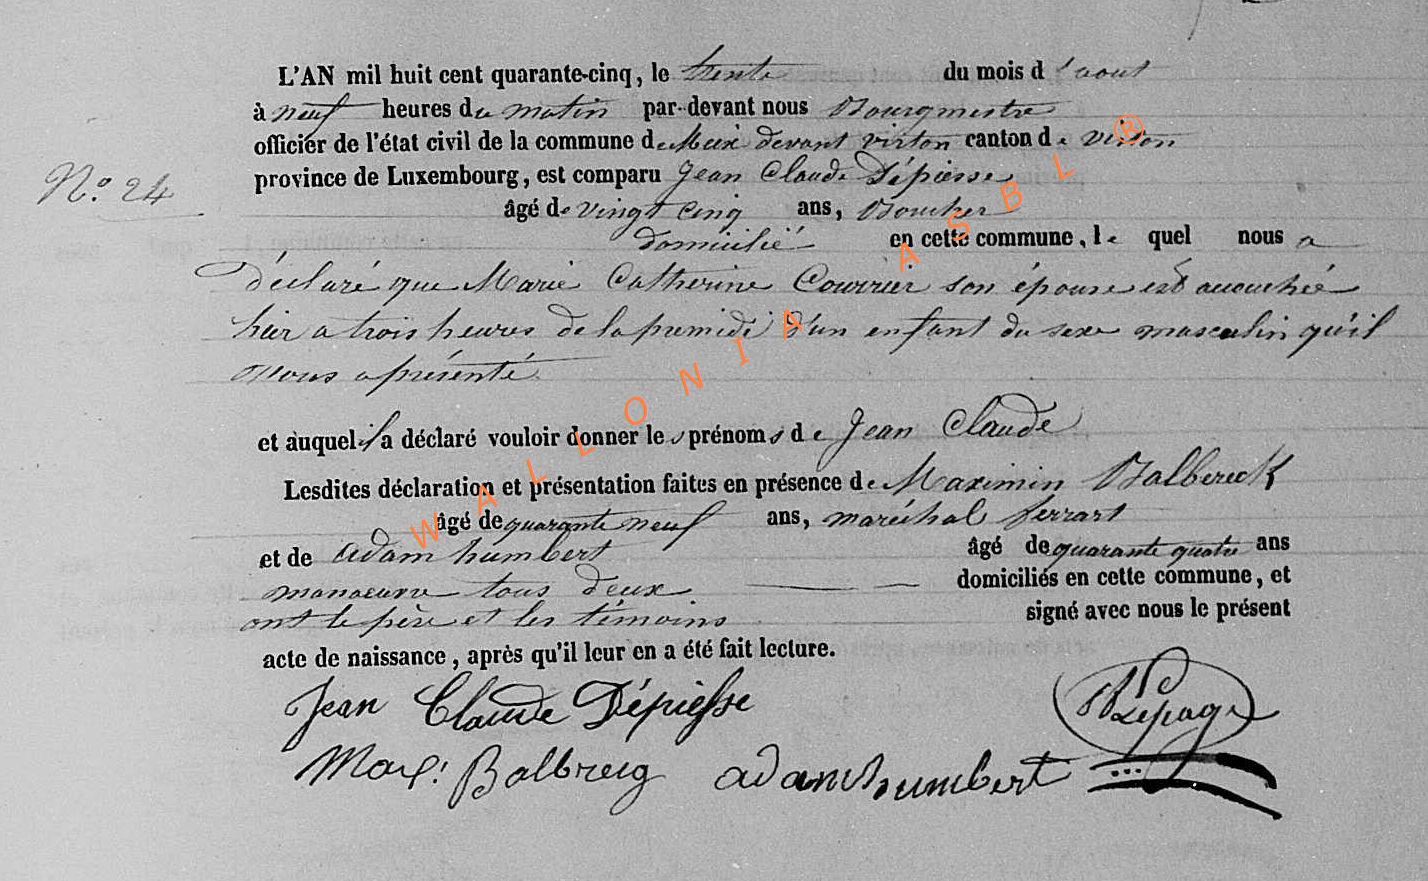 L'AN mil huit cent quarante-cinq, le trente du mois d'aout
à neuf heures du matin par-devant nous Bourgmestre
officier de l'état civil de la commune de Meix devant virton canton de virton
N.° 24
province de Luxembourg, est comparu Jean Claude Dépiesse
âgé de vingt cinq ans, Boucher
domicilié en cette commune, le quel nous a
déclaré que Marie Catherine Courrier son épouse est accouchée
hier a trois heures de la prémidi d'un enfant du sexe masculin qu'il
nous a présenté.
et auquel il a déclaré vouloir donner les prénoms de Jean Claude
Lesdites déclaration et présentation faites en présence de Maximin Balbereck
âgé de quarante neuf ans, maréchal ferrart
et de adam humbert âgé de quarante quatre ans
manoeuvre tous deux domiciliés en cette commune, et
ont le père et les témoins signé avec nous le présent
acte de naissance, après qu'il leur en a été fait lecture.
Jean Claude Dépiesse
Lepage
Max: Balbreig adam humbert
WALLONIA ASBL ®